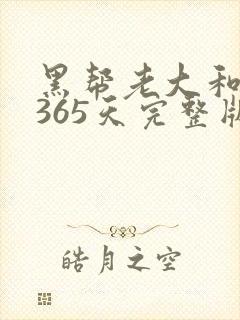 黑帮老大和
365天完整版
皓月之空